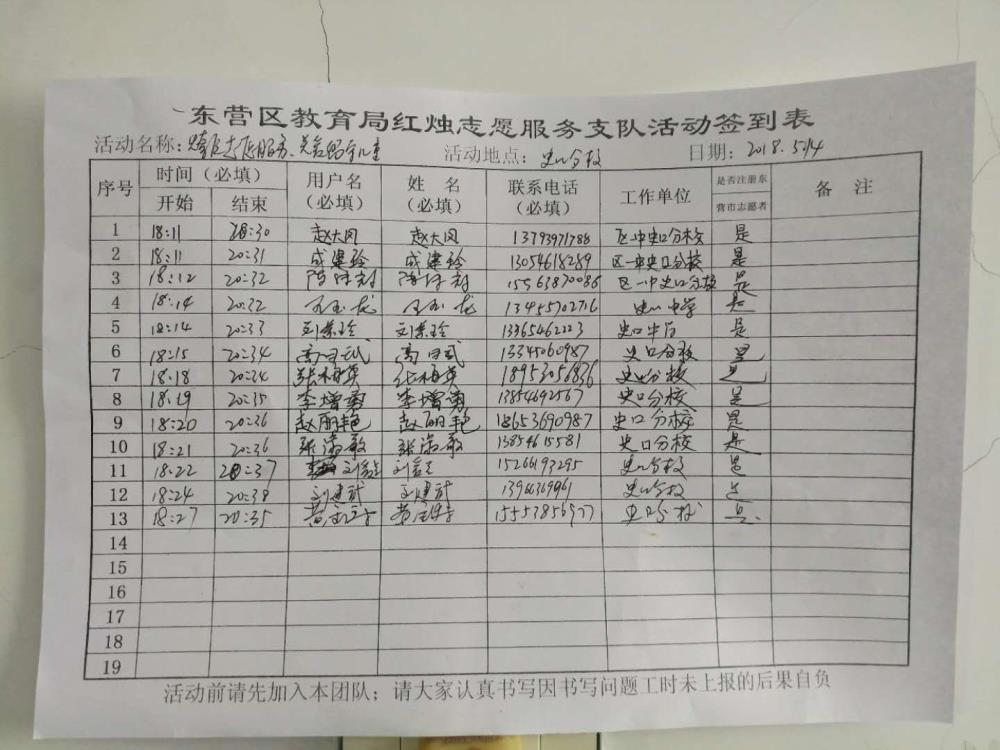 东营区教育局红烛志愿服务支队活动签到表
活动名称: 志愿服务、关爱留守儿童 活动地点: 史口分校 日期: 2018.5.14
序号 时间（必填） 用户名（必填） 姓 名（必填） 联系电话（必填） 工作单位 是否注册东营市志愿者 备 注
开始 结束
1 18:11 20:30 赵大凤 赵大凤 13793971788 区一中史口分校 是
2 18:11 20:31 成建玲 成建玲 13054618289 区一中史口分校 是
3 18:12 20:32 15563870086 区一中史口分校 是
4 18:14 20:32 13455702716 史口中学 是
5 18:14 20:33 刘景玲 刘景玲 13365462223 史口中学 是
6 18:15 20:34 13345060987 史口分校 是
7 18:18 20:34 张梅英 张梅英 18953056836 史口分校 是
8 18:19 20:35 李增勇 李增勇 13854692567 史口分校 是
9 18:20 20:36 赵丽艳 赵丽艳 18653690987 史口分校 是
10 18:21 20:36 张海敏 张海敏 13854615581 史口分校 是
11 18:22 20:37 15266193295 史口分校 是
12 18:24 20:38 刘建新 刘建新 史口分校 是
13 18:27 20:35 15553856977 史口分校 是
14
15
16
17
18
19
活动前请先加入本团队；请大家认真书写因书写问题工时未上报的后果自负